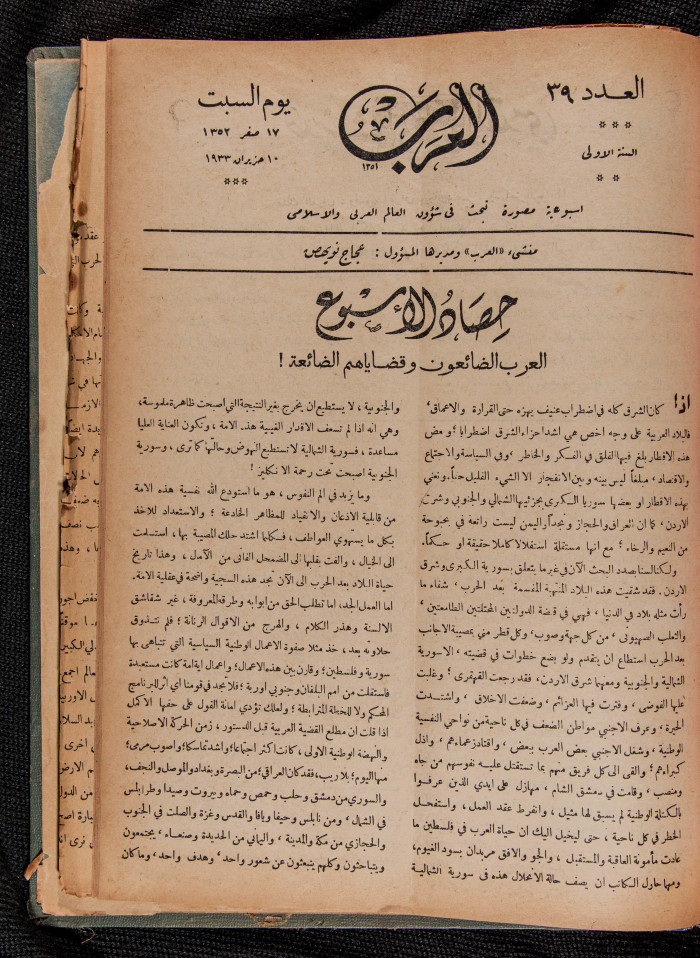 العدد ٣٩
السنة الاولى
العرب
١٣٥١
يوم السبت
١٧ صفر ١٣٥٢
١٠ حزيران ١٩٣٣
اسبوعية مصورة تبحث في شؤون العالم العربي والاسلامي
منشىء «العرب» ومديرها المسؤول : عجاج نويهض
حصاد الأسبوع
العرب الضائعون وقضاياهم الضائعة !
اذا كان الشرق كله في اضطراب عنيف يهزه حتى القرارة والاعماق،
فالبلاد العربية على وجه اخص هي اشد اجزاء الشرق اضطرابا؛ وبعض
هذه الاقطار بلغ فيها القلق في الفكر والخاطر، وفي السياسة والاجتماع
والاقتصاد، مبلغاً ليس بينه وبين الانفجار الا الشيء القليل حتماً. ونعني
بهذه الاقطار او بعضها سوريا الكبرى بجزئيها الشمالي والجنوبي وشرق
الاردن، كما ان العراق والحجاز ونجداً واليمن ليست راتعة في بحبوحة
من النعيم والرخاء؛ مع انها مستقلة استقلالا كاملا حقيقة او حكماً.
ولكنا لسنا بصدد البحث الآن في غير ما يتعلق بسورية الكبرى وشرق
الاردن. فقد شقيت هذه البلاد المنتهبة المقسمة بعد الحرب، شقاء ما
رأت مثله بلاد في الدنيا، فهي في قبضة الدولتين المحتلتين الطامعتين،
والثعلب الصهيوني، من كل جهة وصوب، وكل قطر مني بمصيبة الاجانب
بعد الحرب استطاع ان يتقدم ولو بضع خطوات في قضيته، الا سورية
الشمالية والجنوبية ومعهما شرق الاردن، فقد رجعت القهقرى؛ وغلبت
عليها الفوضى، وفترت فيها العزائم، وضعفت الاخلاق، واشتدت
الحيرة، وعرف الاجنبي مواطن الضعف في كل ناحية من نواحي النفسية
الوطنية، وشغل الاجنبي بعض العرب ببعض، واقتاد زعماءهم، واذل
كبراءهم؛ والقى الى كل فريق منهم بما تستقتل عليه نفوسهم من جاه
ومنصب، وقامت في دمشق الشام، مهازل على ايدي الذين عرفوا
بالكتلة الوطنية لم يسبق لها مثيل، وانفرط عقد العمل، واستفحل
الخطر في كل ناحية، حتى ليخيل اليك ان حياة العرب في فلسطين ما
عادت مأمونة العاقبة والمستقبل، والجو والافق مربدان بسود الغيوم،
ومهما حاول الكاتب ان يصف حالة الانحلال هذه في سورية الشمالية
والجنوبية، لا يستطيع ان يخرج بغير النتيجة التي اصبحت ظاهرة ملموسة،
وهي انه اذا لم تسعف الاقدار الغيبية هذه الامة، وتكون العناية العليا
مساعدة، فسورية الشمالية لا تستطيع النهوض وحالها كما ترى، وسورية
الجنوبية اصبحت تحت رحمة الانكليز !
وما يزيد في الم النفوس، هو ما استودع الله نفسية هذه الامة
من قابلية الاذعان والانقياد للمظاهر الخادعة؛ والاستعداد للاخذ
بكل ما يستهوي العواطف، فكلما اشتد حلك المصيبة بها، استسلمت
الى الخيال، والقت بقلبها الى المضمحل الفاني من الآمال، وهذا تاريخ
حياة البلاد بعد الحرب الى الآن نجد هذه السجية واضحة في عقلية الامة.
اما العمل الجد، اما تطلب الحق من ابوابه وطرقه المعروفة، غير شقاشق
الالسنة وهذر الكلام، والهرج من الاقوال الرنانة؛ فلم تتذوق
حلاوته بعد، خذ مثلا صفوة الاعمال الوطنية السياسية التي تتباهى بها
سورية وفلسطين؛ وقارن بين هذه الاعمال؛ واعمال اية امة كانت مستعبدة
فاستقلت من امم البلقان وجنوبي اوربة؛ فلا تجد في قومنا اي اثر للبرنامج
المحكم ولا للخطة المترابطة؛ ولعلك تؤدي امانة القول على حقها الاكمل
اذا قلت ان مطلع القضية العربية قبل الدستور، زمن الحركة الاصلاحية
والنهضة الوطنية الاولى، كانت اكثر اجتماعا؛ واشد تماسكا؛ واصوب مرمى؛
منها اليوم؛ بلا ريب، فقد كان العراقي؛ من البصرة وبغداد والموصل والنجف،
والسوري من دمشق وحلب وحمص وحماه وبيروت وصيدا وطرابلس
في الشمال، ومن نابلس وحيفا ويافا والقدس وغزة والصلت في الجنوب
والحجازي من مكة والمدينة، واليماني من الحديدة وصنعاء، يجتمعون
ويتباحثون وكلهم ينبعثون عن شعور واحد، وهدف واحد، وما كان